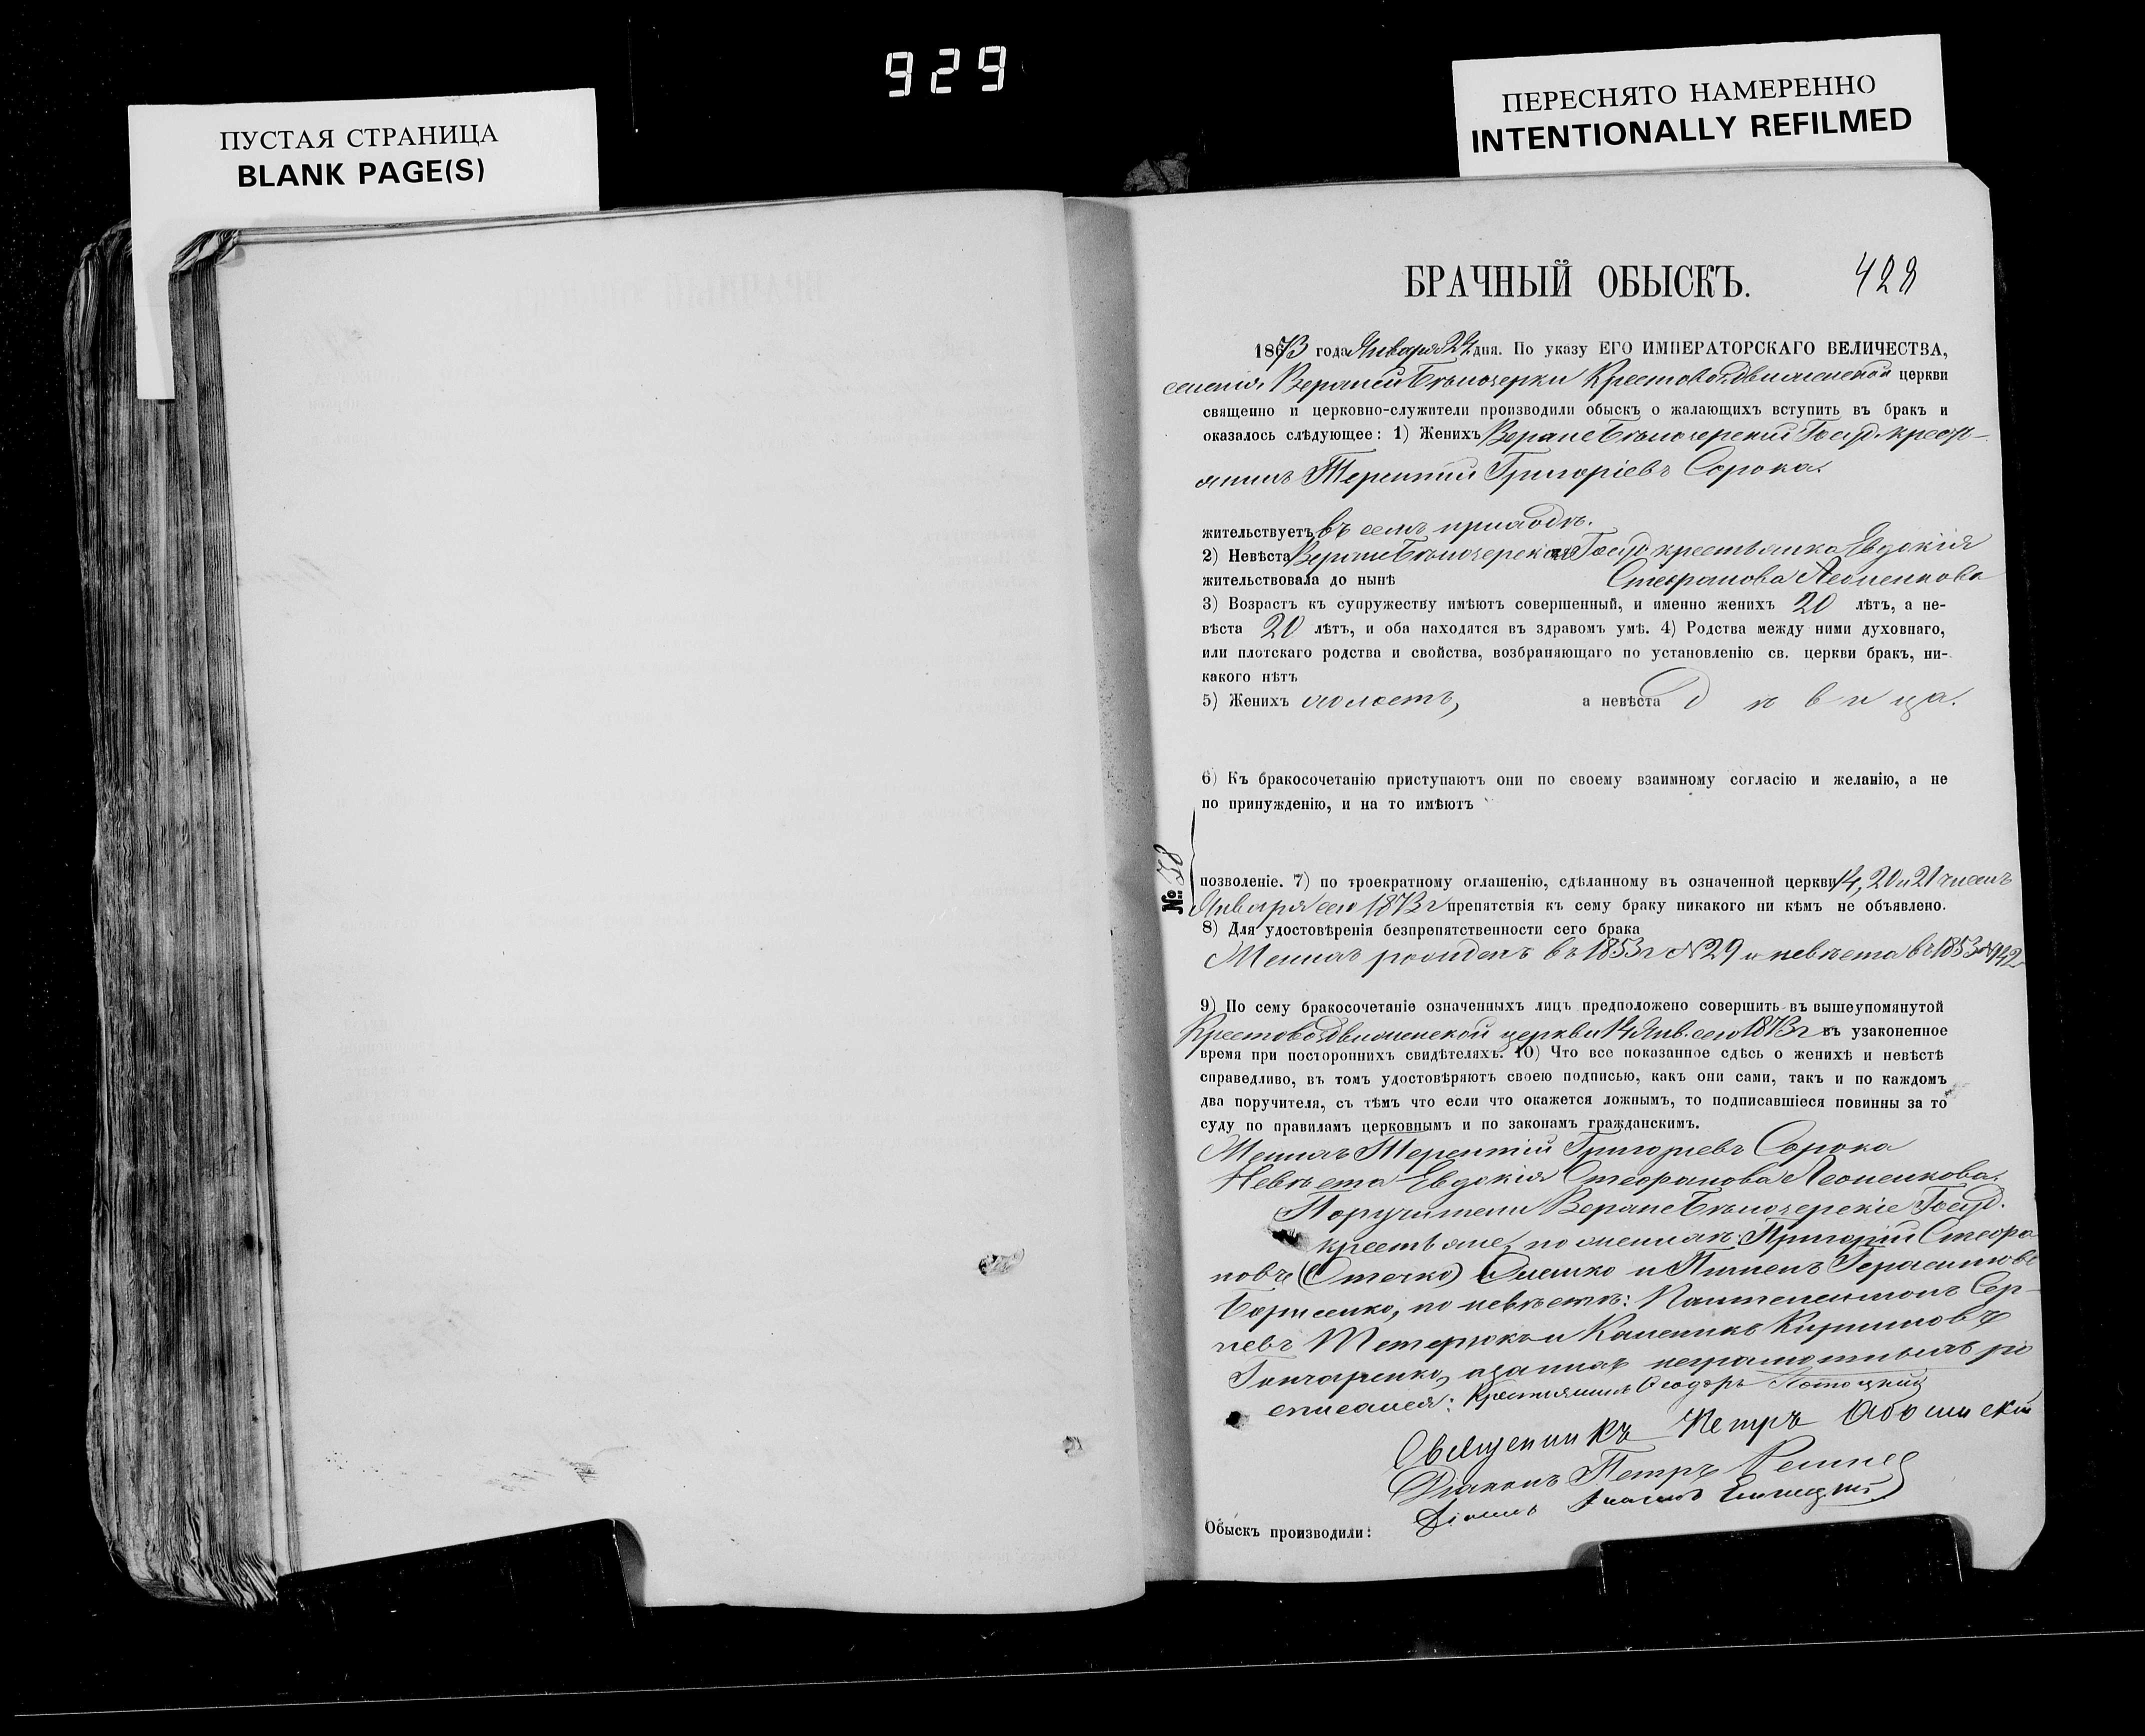 929
ПУСТАЯ СТРАНИЦА
BLANK PAGE(S)
ПЕРЕСНЯТО НАМЕРЕННО
INTENTIONALLY REFILMED
БРАЧНЫЙ ОБЫСКЪ.
428
1873 года Января 22 дня. По указу ЕГО ИМПЕРАТОРСКАГО ВЕЛИЧЕСТВА,
селенія Верхней Бѣлозерки Крестовоздвиженской церкви
священно и церковно-служители производили обыскъ о жалающихъ вступить въ бракъ и
оказалось слѣдующее: 1) Женихъ Верхнебѣлозерскій Госуд. крестья-
нинъ Терентій Григоріевъ Сорока.
жительствуетъ въ семъ приходѣ.
2) Невѣста Верхнебѣлозерская Госуд крестьянка Евдокія
жительствовала до нынѣ Стефанова Леоненкова
3) Возрастъ къ супружеству имѣютъ совершенный, и именно женихъ 20 лѣтъ, а не-
вѣста 20 лѣтъ, и оба находятся въ здравомъ умѣ. 4) Родства между ними духовнаго,
или плотскаго родства и свойства, возбраняющаго по установленію св. церкви бракъ, ни-
какого нѣтъ
5) Женихъ холостъ, а невѣста дѣвица.
6) Къ бракосочетанію приступаютъ они по своему взаимному согласію и желанію, а не
по принужденію, и на то имѣютъ
№: 38
позволеніе. 7) по троекратному оглашенію, сдѣланному въ означенной церкви 14, 20 и 21 чиселъ
Января сего 1873 г препятствія къ сему браку никакого ни кѣмъ не объявлено.
8) Для удостовѣренія безпрепятственности сего брака
Женихъ рожденъ въ 1853 г N 29 и невѣста въ 1853 N 42
9) По сему бракосочетаніе означенныхъ лицъ предположено совершить въ вышеупомянутой
Крестовоздвиженской церкви Янв. сего 1873 г въ узаконенное
время при постороннихъ свидѣтеляхъ. 10) Что все показанное сдѣсь о женихѣ и невѣстѣ
справедливо, въ томъ удостовѣряютъ своею подписью, какъ они сами, такъ и по каждомъ
два поручителя, съ тѣмъ что если что окажется ложнымъ, то подписавшіеся повинны за то
суду по правиламъ церковнымъ и по законамъ гражданскимъ.
Женихъ Терентій Григорьевъ Сорока
Невѣста Евдокія Стефанова Леоненкова.
Поручители Верхнебѣлозерскіе Госуд.
крестьяне, по женихѣ: Григорій Стефа
новъ и Пименъ Герасимовъ
Борисенко, по невѣстѣ: Пантелеимонъ Сер-
геевъ и Каленикъ Кириловъ
Гончаренко, а за нихъ неграмотныхъ ро
списался: Крестьянинъ Феодоръ Потоцкій
Священникъ Петръ
Діаконъ Петръ
Обыскъ производили: